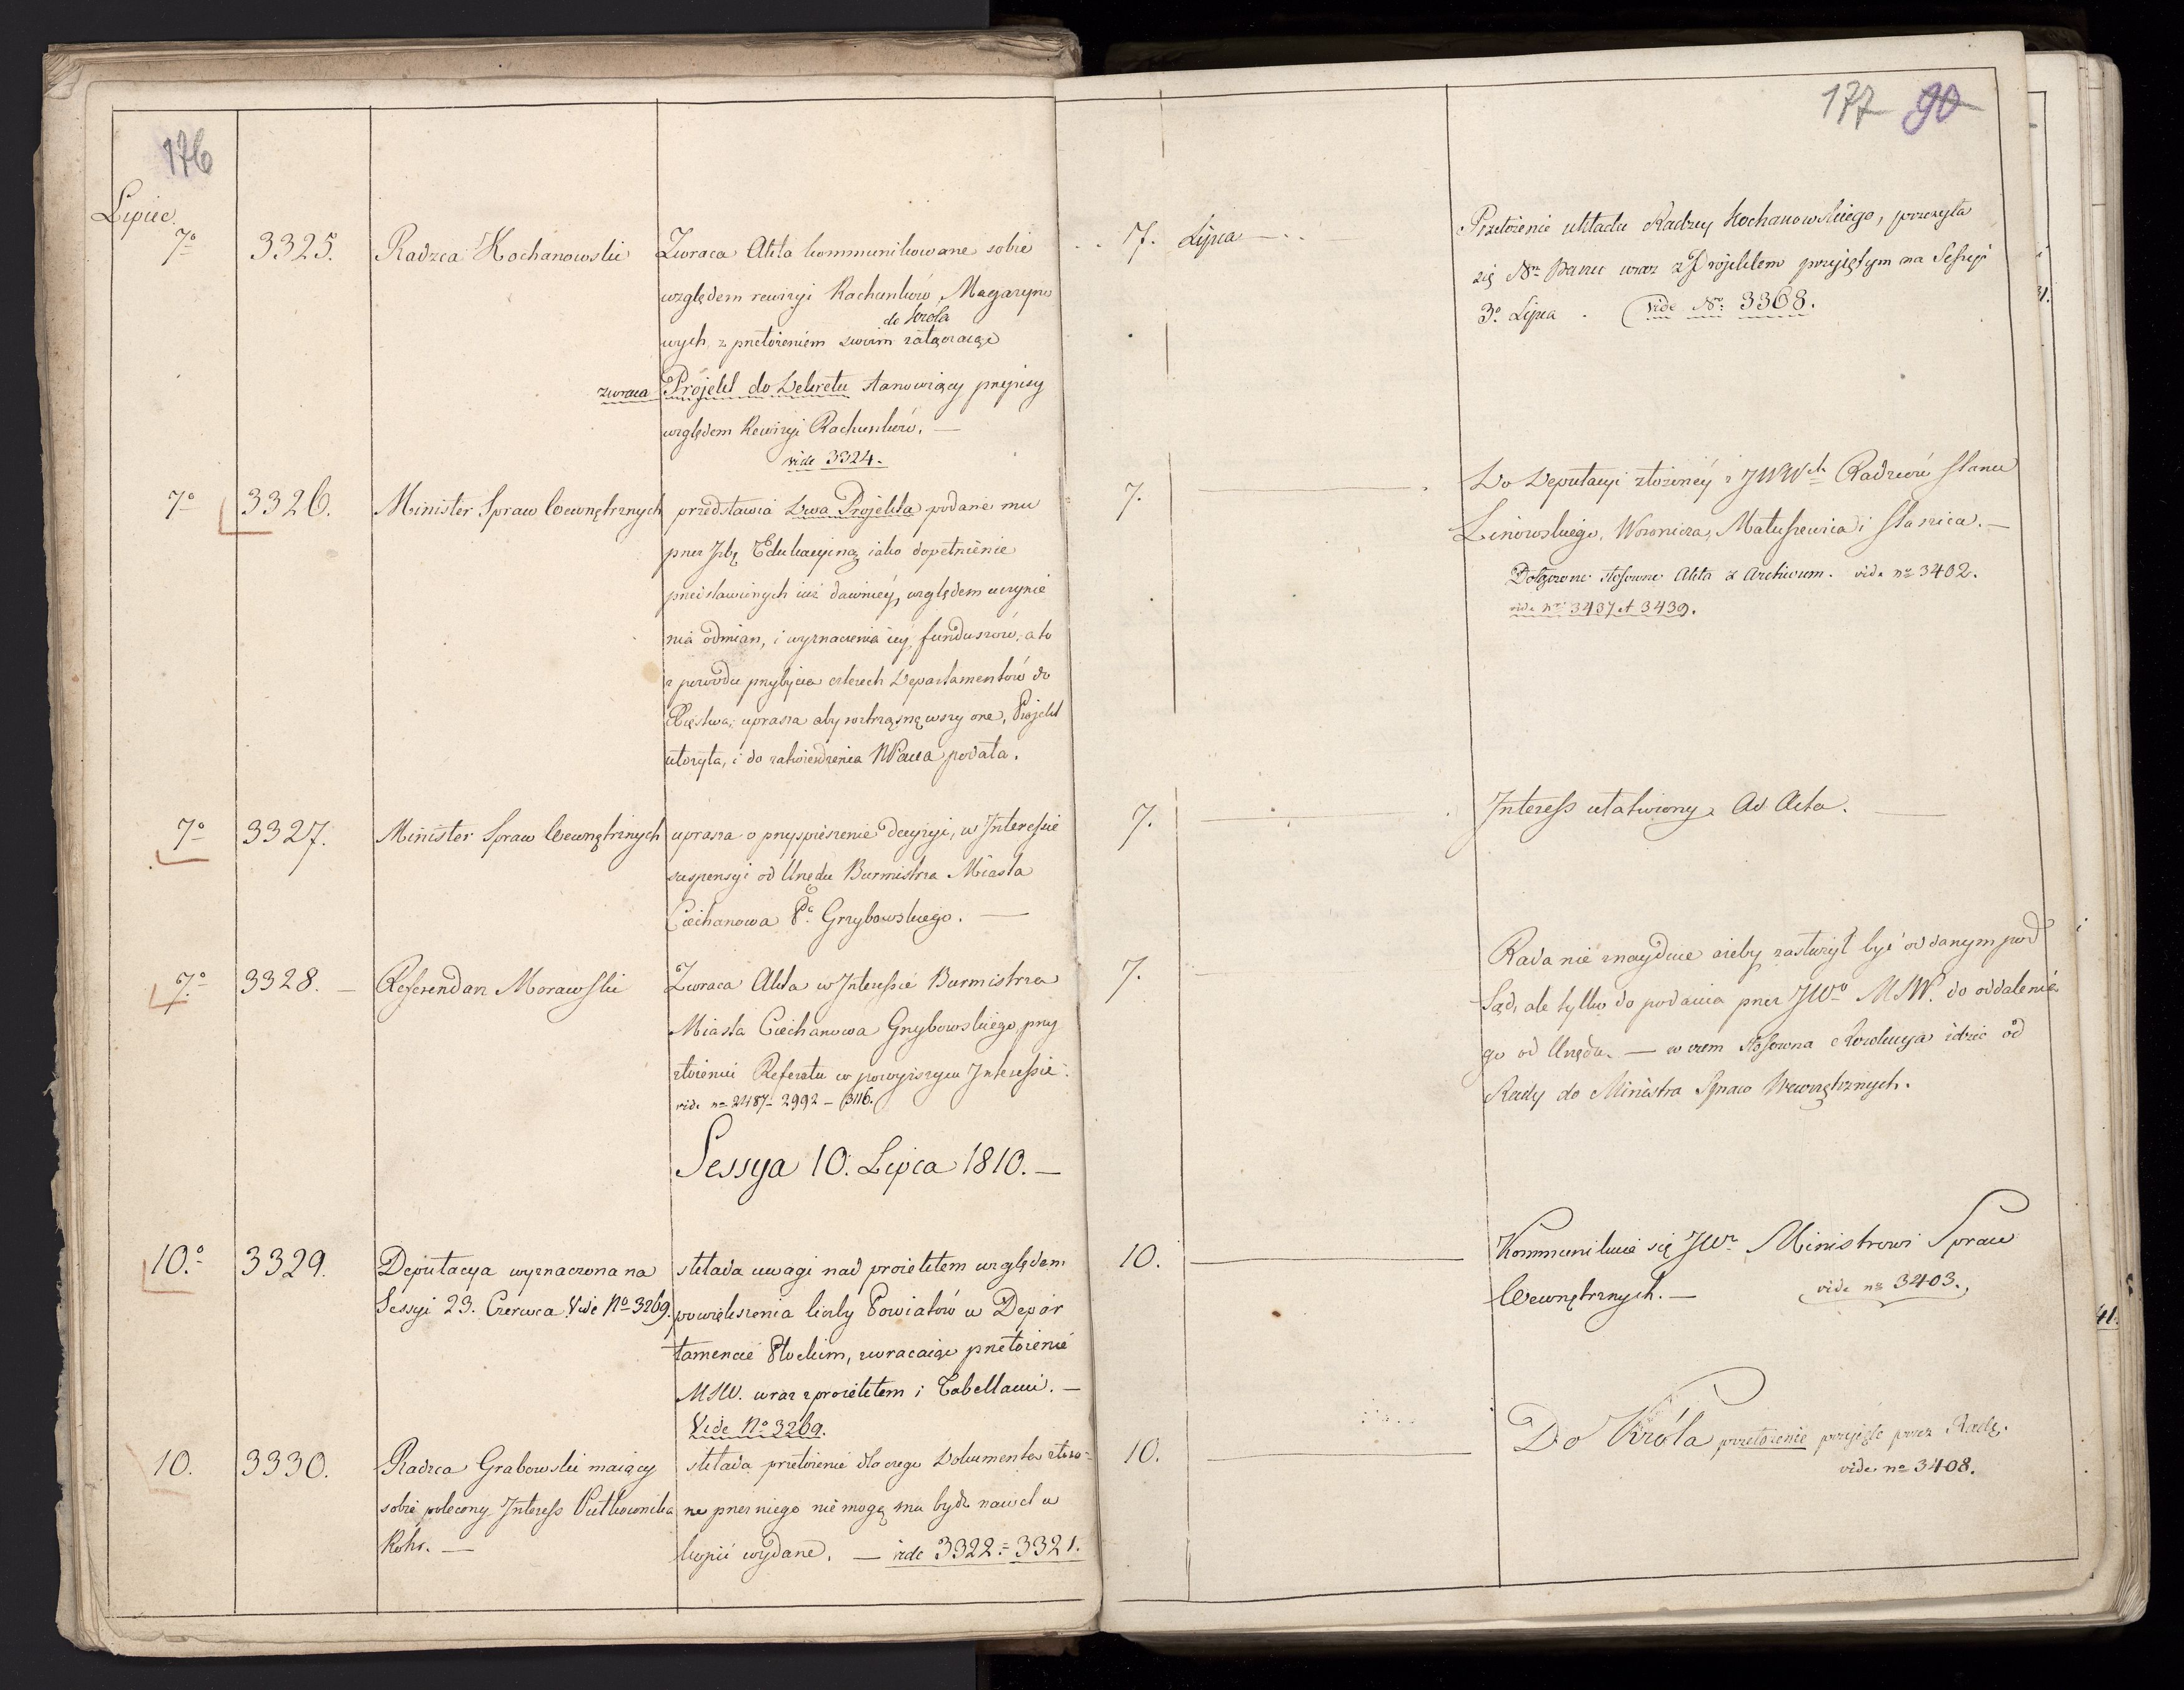 176
Lipiec.
7º 3325. Radzca Kochanowski Zwraca Akta kommunikowane sobie
względem rewizyi Rachunków Magazyno
do Króla
wych, z przełożeniem swoim załączając
zwraca Projekt do Dekretu stanowiący przepisy
względem Rewizyi Rachunków. —
vide 3324.
7º 3326. Minister Spraw Wewnętrznych przedstawia dwa Projekta podane mu
przez Izbę Edukacyiną iako dopełnienie
przedstawionych iuż dawniéy, względem uczynie
nia odmian, i wyznaczenia iéy funduszów, a to
z powodu przybycia czterech Departamentów do
Xięstwa, uprasza aby roztrząsnąwszy one, Projekt
ułożyła, i do zatwierdzenia NPana podała.
7º 3327. Minister Spraw Wewnętrznych uprasza o przyspieszenie decyzyi, w Interessie
suspensyi od Urzędu Burmistrza Miasta
Ciechanowa Pº Grzybowskiego. —
7º 3328. — Referendarz Morawski Zwraca Akta w Interessie Burmistrza
Miasta Ciechanowa Grzybowskiego, przy
złożeniu Referatu w powyższym Interessie.
vide nº 2487 – 2992 – 3116.
Sessya 10. Lipca 1810. —
10º 3329. Deputacya wyznaczona na składa uwagi nad proiektem względem
Sessyi 23. Czerwca Vide Nº 3269. powiększenia liczby Powiatów w Depar
tamencie Płockim, zwracaiąc przełożenie
MSW. wraz z proiektem i Tabellami. —
Vide Nº 3269.
10. 3330. Radzca Grabowski maiący składa przełożenie dla czego Dokumenta złożo=
sobie polecony Interess Pułkownika ne przez niego nie mogą mu bydź nawet w
Rohr. — kopii wydane. — vide 3322 = 3321.
177 90
7. Lipca — Przełożenie układu Radzcy Kochanowskiego, przesyła
się Nº Panu wraz z Projektem przyiętym na Sessyi
3º Lipca. (vide Nº 3368.
7. — Do Deputacyi złożonéy z JWWch Radzców Stanu
Linowskiego, Woronicza, Matuszewica i Stasica. —
Dołączone stosowne Akta z Archiwum. vide nº 3402.
vide nº 3437 et 3439.
7. — Interess ułatwiony. Ad Acta. —
7. — Rada nie znayduie ażeby zasłużył być oddanym pod
Sąd, ale tylko do podania przez JWº MSW. do oddalenia
go od Urzędu. — w czem stosowna Rezolucya idzie od
Rady do Ministra Spraw Wewnętrznych.
10. — Kommunikuie się JWº Ministrowi Spraw
Wewnętrznych. — vide nº 3403.
10. — Do Króla przełożenie przyięte przez Radę.
vide nº 3408.
41.